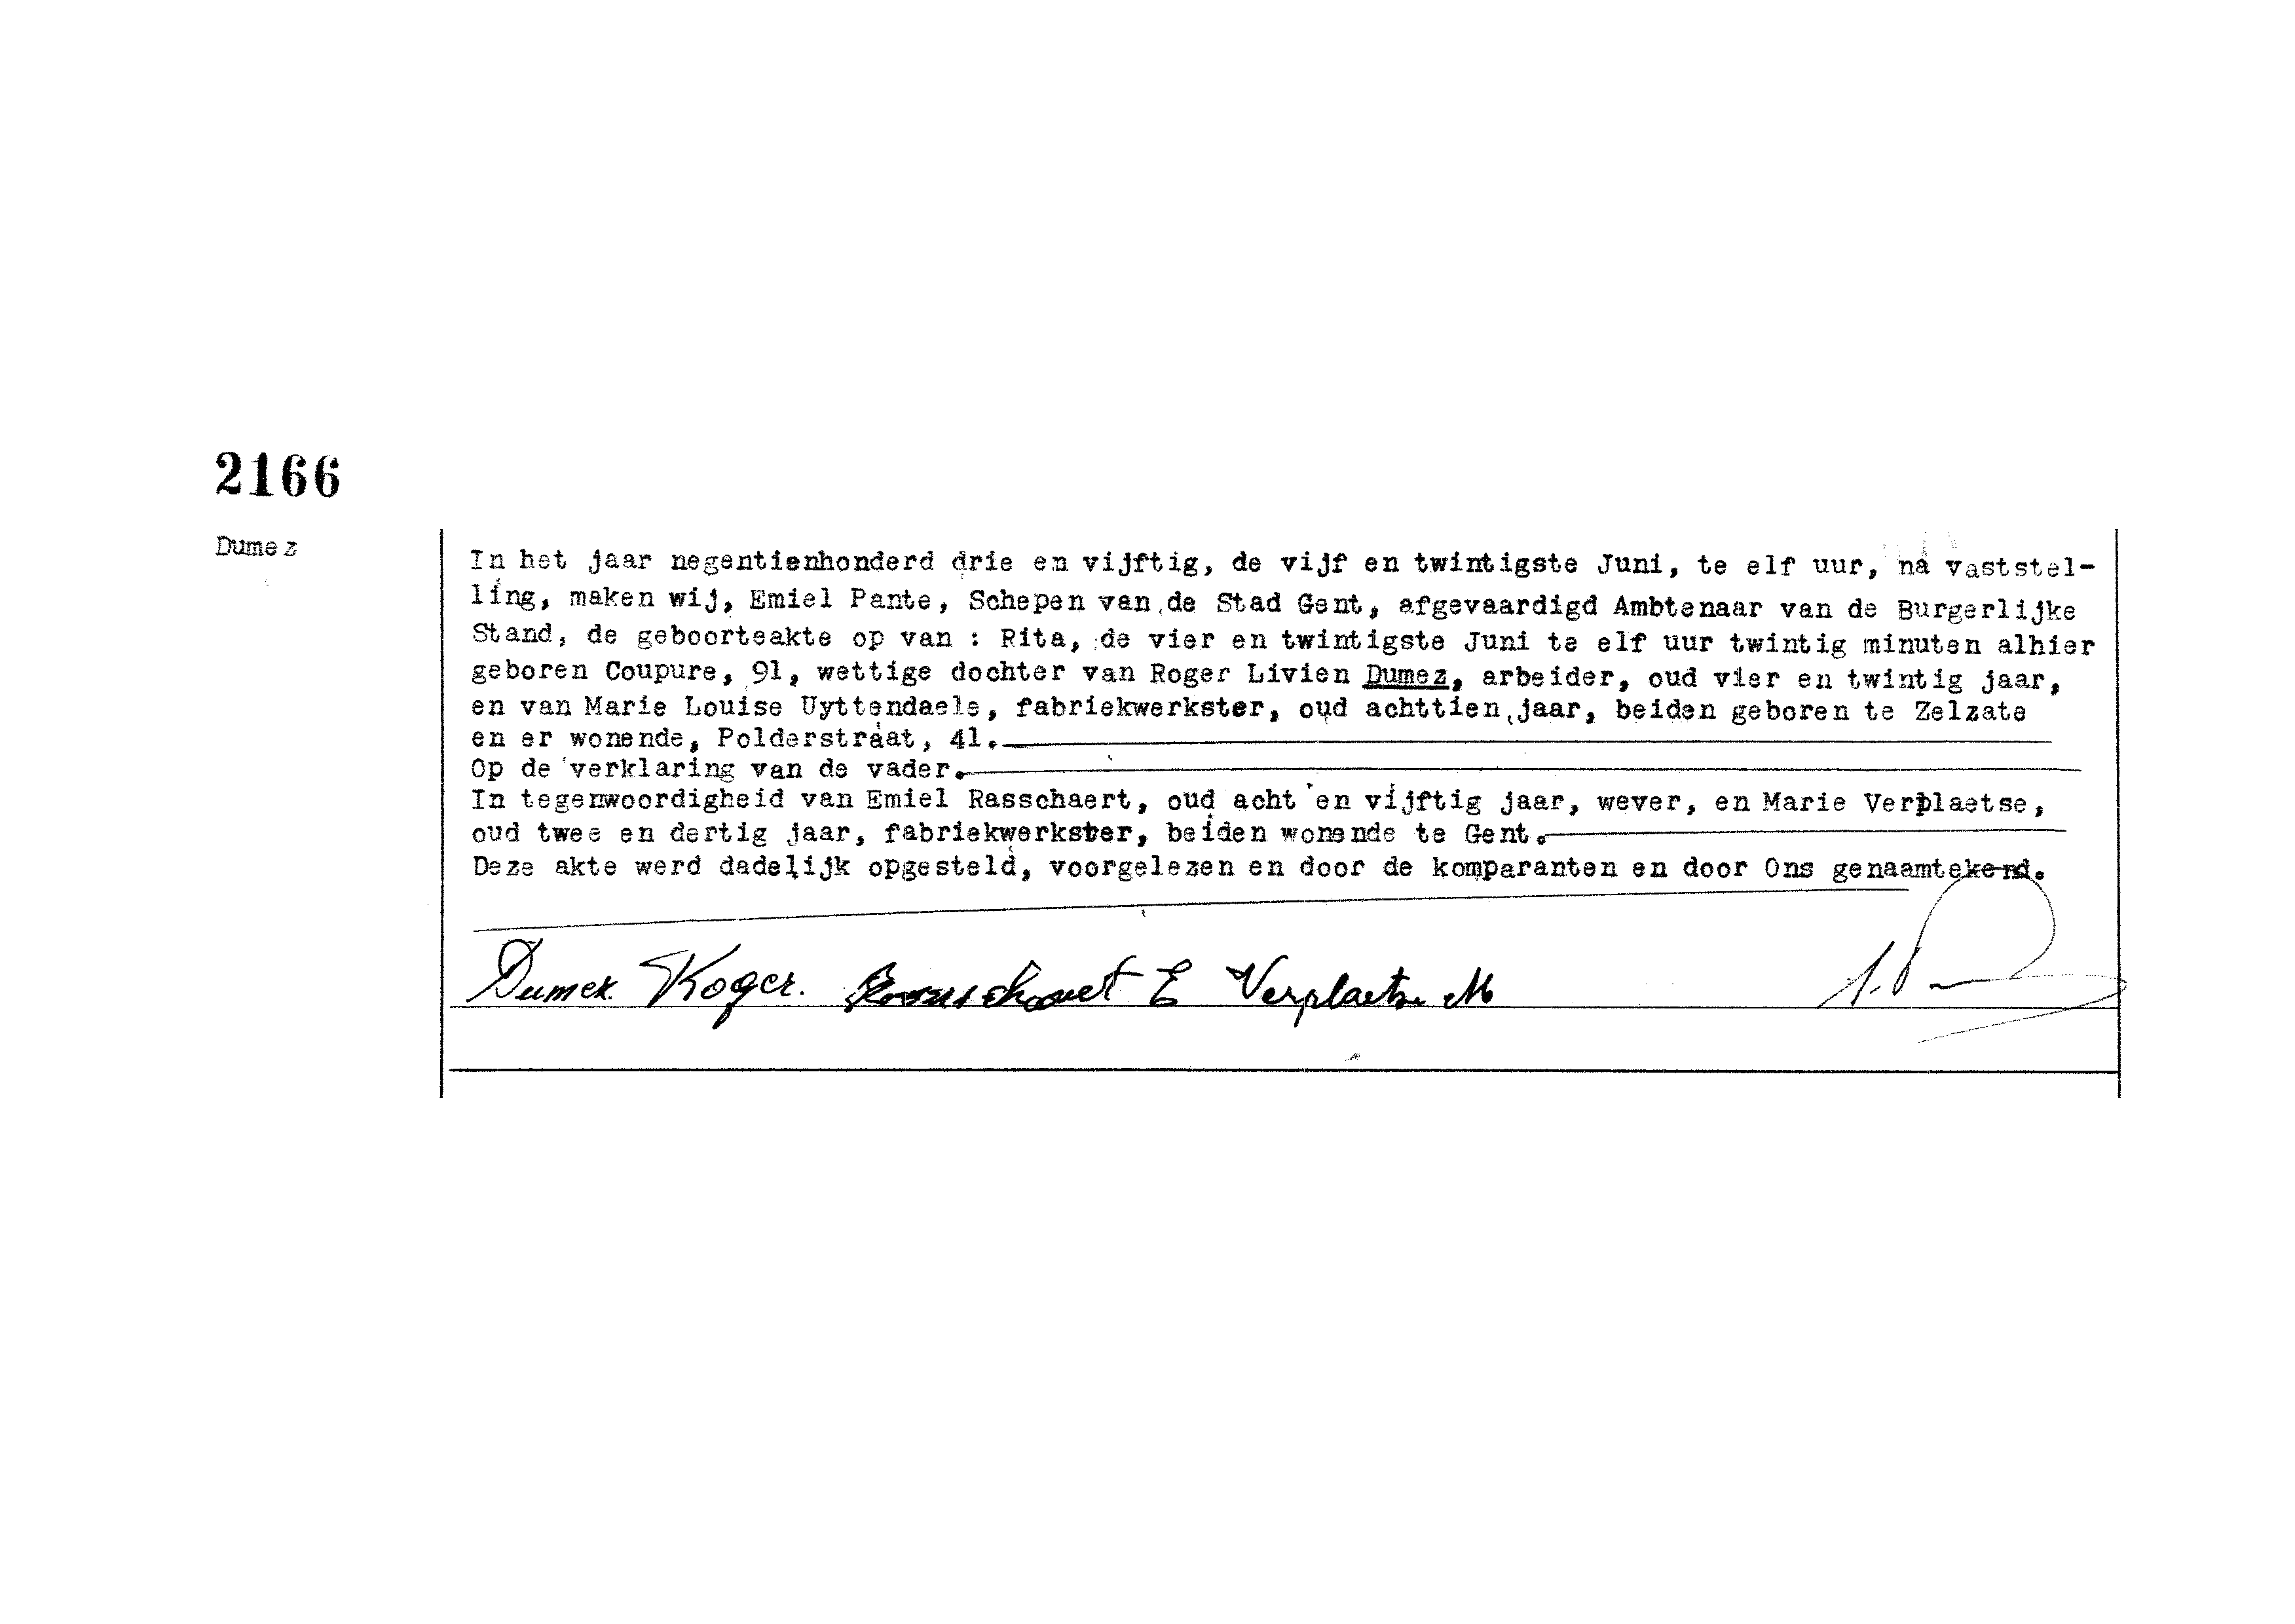 2166
Dumez
In het jaar negentienhonderd drie en vijftig, de vijf en twintigste Juni, te elf uur, na vaststel-
ling, maken wij, Emiel Pante, Schepen van de Stad Gent, afgevaardigd Ambtenaar van de Burgerlijke
Stand, de geboorteakte op van : Rita, de vier en twintigste Juni te elf uur twintig minuten alhier
geboren Coupure, 91, wettige dochter van Roger Livien Dumez, arbeider, oud vier en twintig jaar,
en van Marie Louise Uyttendaele, fabriekwerkster, oud achttien jaar, beiden geboren te Zelzate
en er wonende, Polderstraat, 41.
Op de verklaring van de vader.
In tegenwoordigheid van Emiel Rasschaert, oud acht en vijftig jaar, wever, en Marie Verplaetse,
oud twee en dertig jaar, fabriekwerkster, beiden wonende te Gent.
Deze akte werd dadelijk opgesteld, voorgelezen en door de komparanten en door Ons genaamtekend.
Dumez Roger. Rasschaert E Verplaetse M